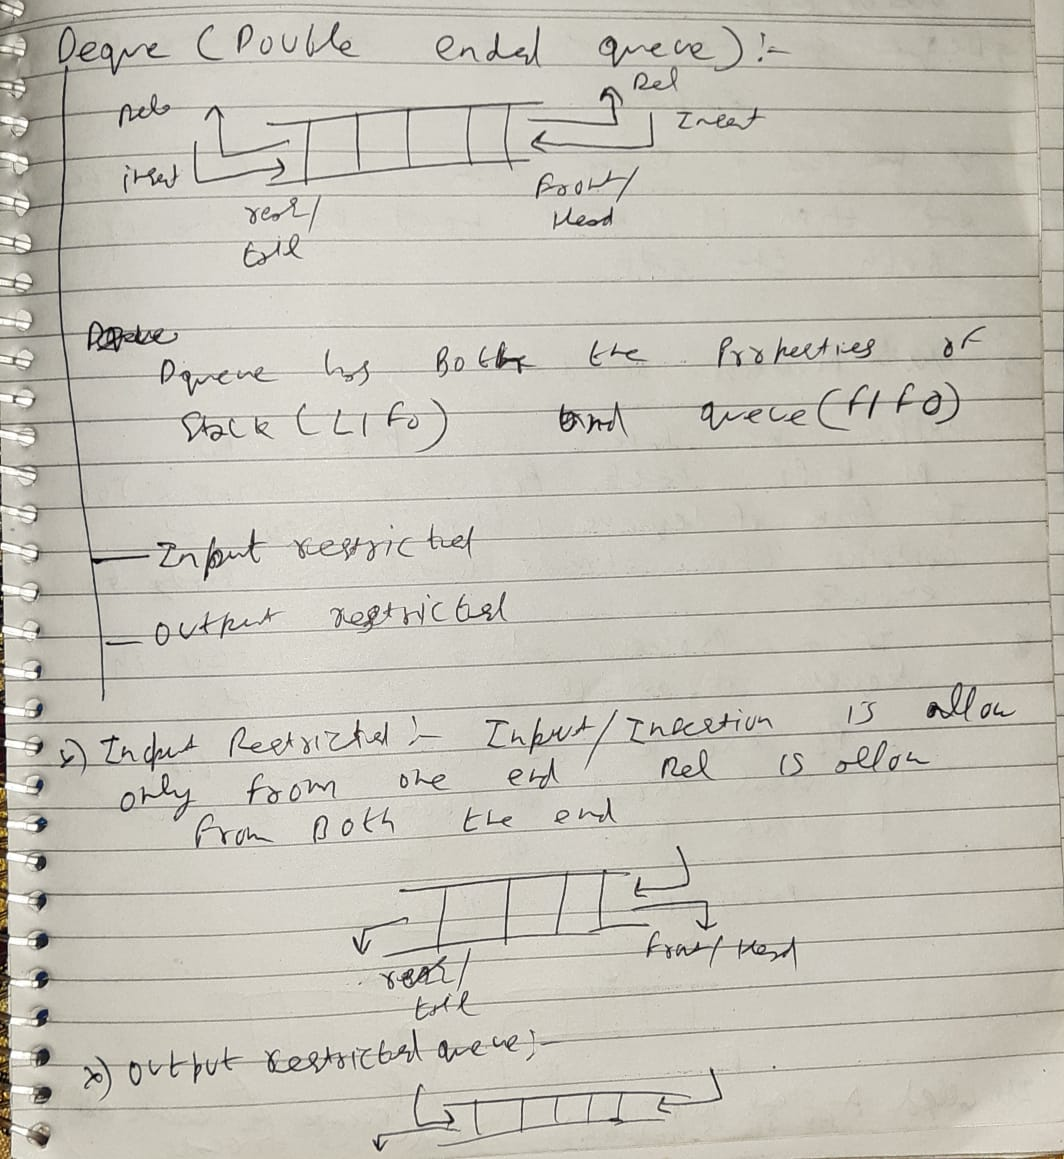 Deque (Double ended queue) :-
Del
Del
Insert
insert
Front/
Head
rear/
tail
Dqueue has Both the Properties of
Stack (LIFO) and queue (FIFO)
Input restricted
Output restricted
1) Input Restricted :- Input/Insertion is allow
only from one end Del is allow
from Both the end
Front/Head
rear/
tail
2) Output restricted queue :-